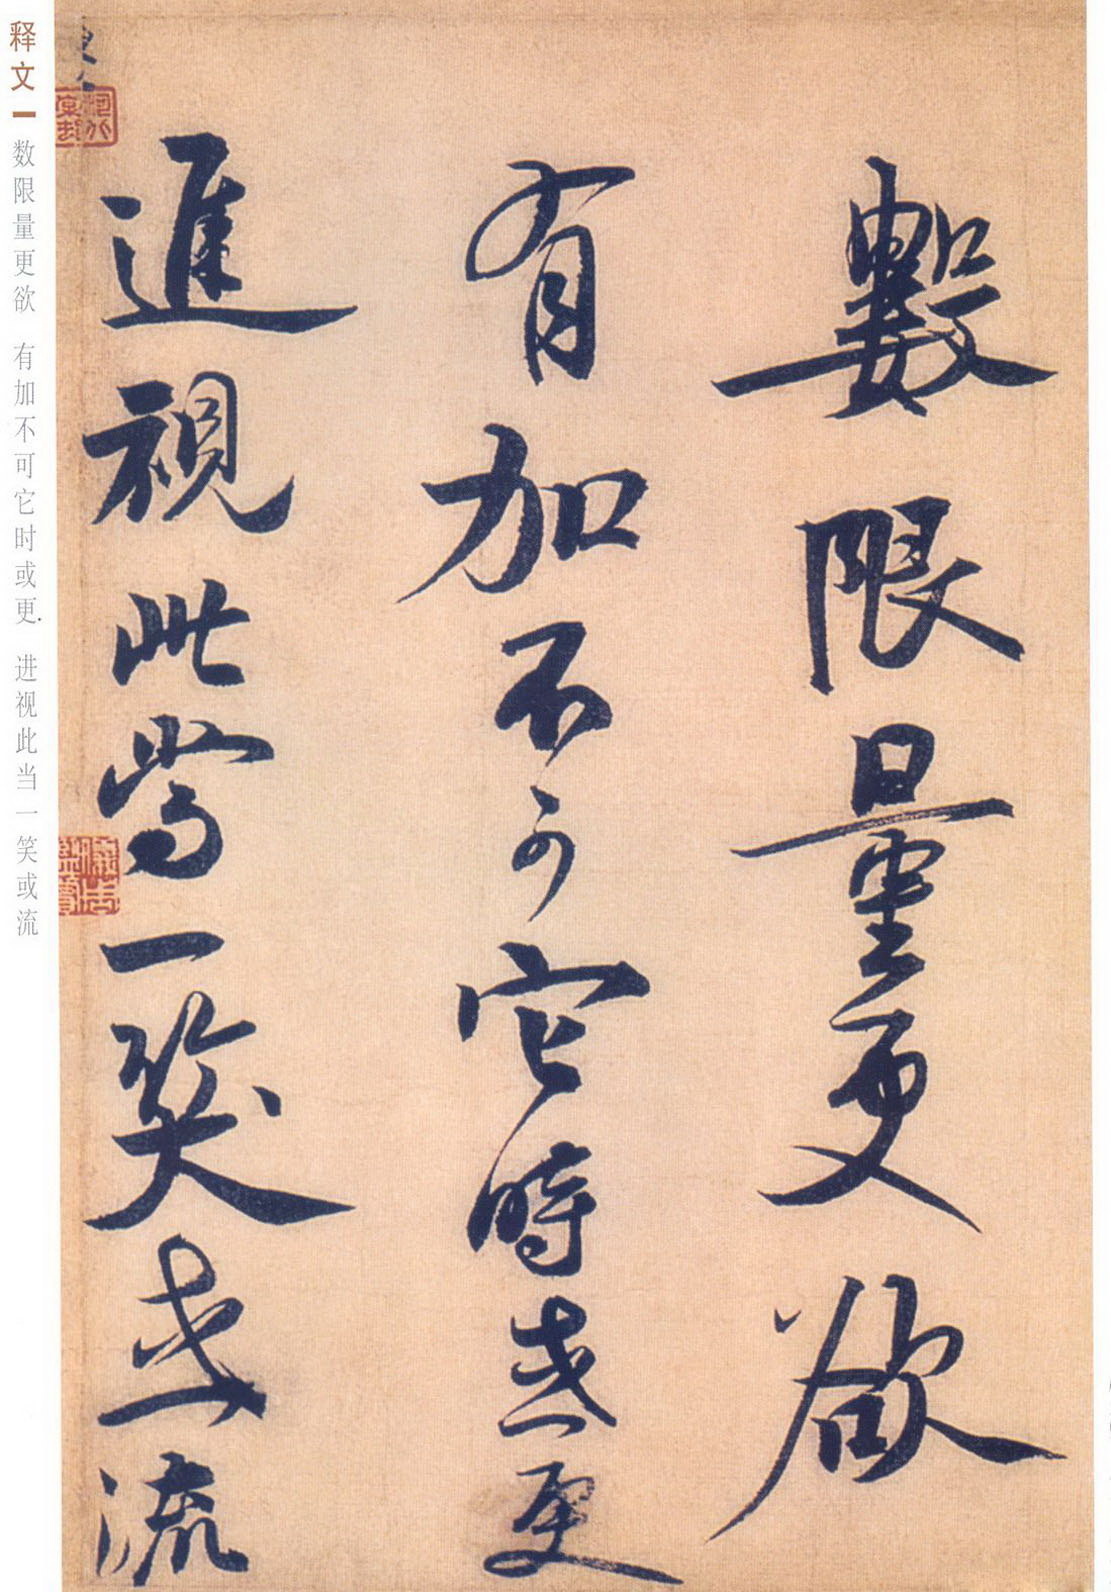 數限量更欲
有加不可它時或更
進視此當一笑或流
释文
数限量更欲 有加不可它时或更 进视此当一笑或流